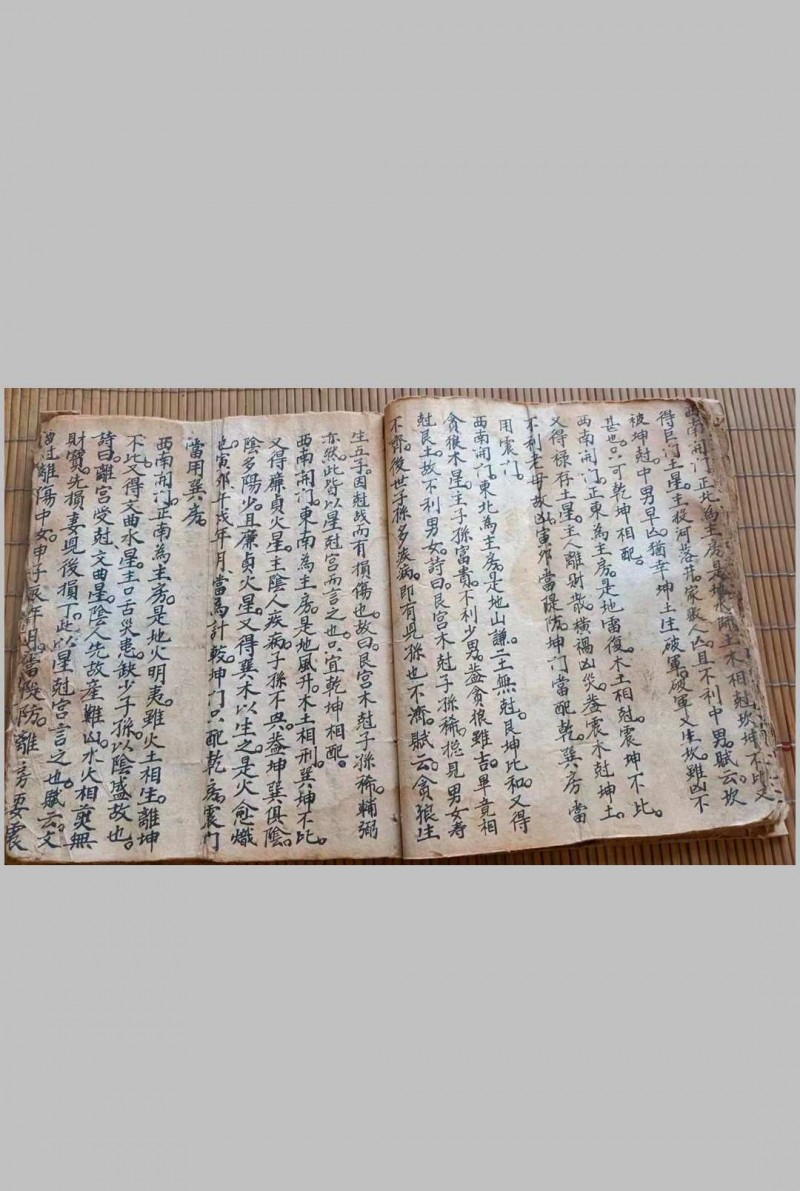 西南開门。正北為主房。是地水師。土木相尅。坎坤不比。又
得巨门土星。主投河落井。家敗人凶。且不利中男。賦云。坎
被坤尅。中男早凶。猶幸坤土生破軍。破軍又生坎。雖凶不
甚也。只可乾坤相配。
西南開门。正東為主房。是地雷復。木土相尅。震坤不比。
又得祿存土星。主人離財散。橫禍凶災。盖震木尅坤土。
不利老母。故凶。寅卯當隄防。坤门當配乾。巽房當
用震门。
西南開门。東北為主房。是地山謙。二土無尅。艮坤比和。又得
貪狼木星。主子孫富貴。不利少男。盖貪狼雖吉。畢竟相
尅艮土。故不利男女。詩曰。艮宮木尅子孫稀。总見男女寿
不齊。後世子孫多疾病。即有兒孫也不濟。賦云。貪狼生
生五子。因尅战而有損傷也。故曰。艮宮木尅子孫稀。輔弼
亦然。此皆以星尅宮而言之也。只宜乾坤相配。
西南開门。東南為主房。是地風升。木土相刑。巽坤不比。
又得廉貞火星。主陰人疾病。子孫不典。盖坤巽俱陰。
陰多陽少。且廉貞火星。又得巽木以生之。是火愈熾
也。寅卯午戌年月。當為計較。坤门只配乾房。震门
當用巽房。
西南開门。正南為主房。是地火明夷。雖火土相生。離坤
不比。又得文曲水星。主口舌災患。缺少子孫。以陰盛故也。
詩曰。離宮受尅文曲星。陰人先故産難凶。水火相煎無
財寶。先損妻兒後損丁。此以星尅宮言之也。賦云。文
離傷中女。申子辰年月。當隄防。離房要震